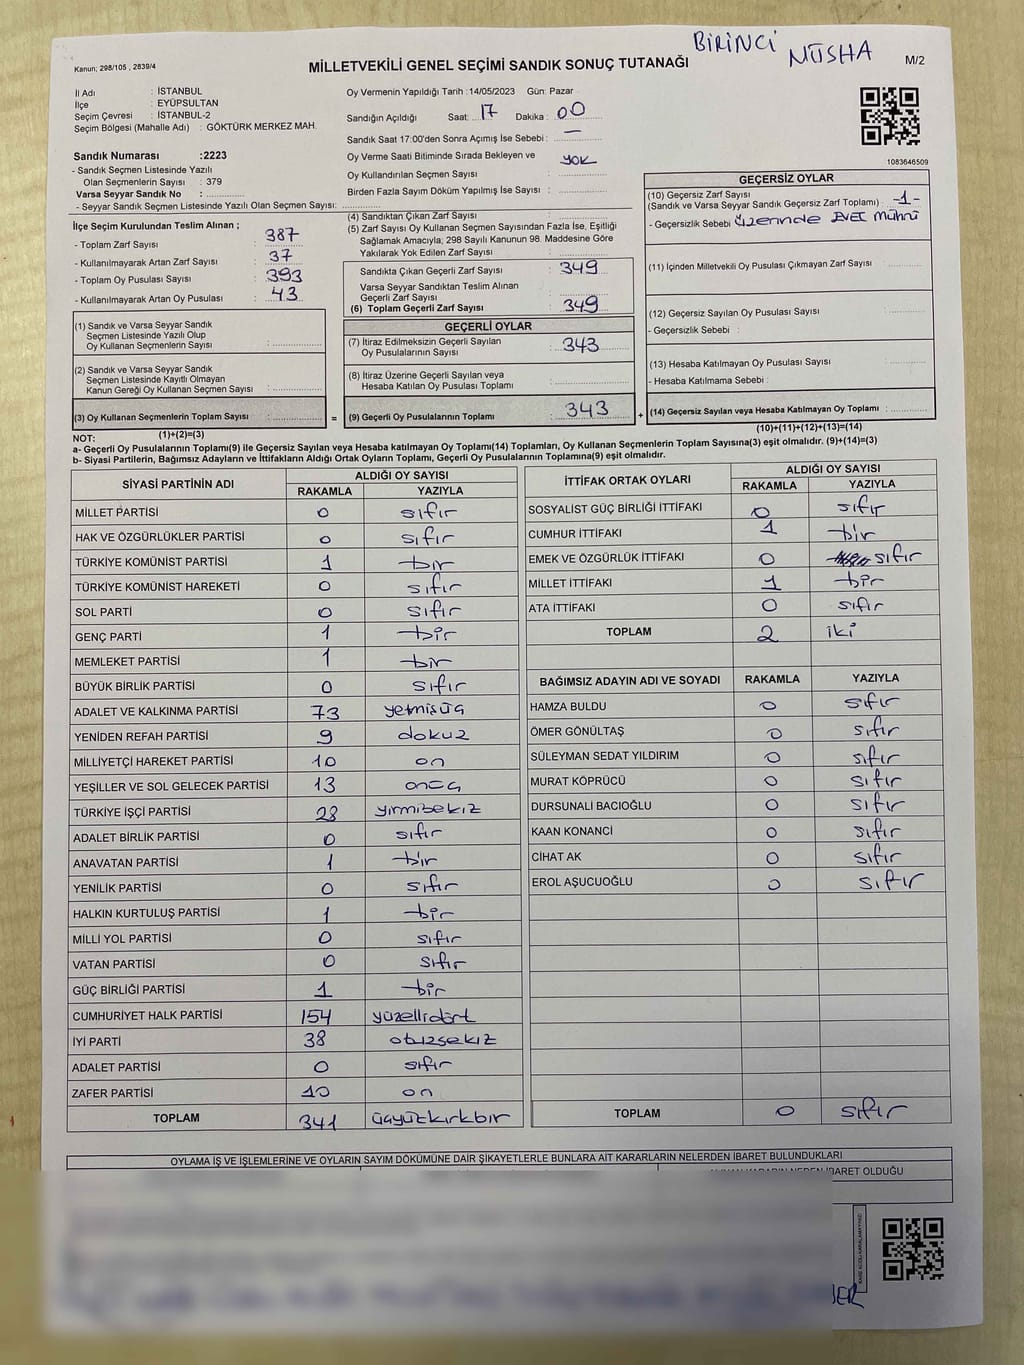 BİRİNCİ NÜSHA
Kanun; 298/105 , 2839/4
MİLLETVEKİLİ GENEL SEÇİMİ SANDIK SONUÇ TUTANAĞI
M/2
İl Adı : İSTANBUL
İlçe : EYÜPSULTAN
Seçim Çevresi : İSTANBUL-2
Seçim Bölgesi (Mahalle Adı) : GÖKTÜRK MERKEZ MAH.
Sandık Numarası :2223
- Sandık Seçmen Listesinde Yazılı
Olan Seçmenlerin Sayısı : 379
Varsa Seyyar Sandık No : ............
- Seyyar Sandık Seçmen Listesinde Yazılı Olan Seçmen Sayısı: ............
Oy Vermenin Yapıldığı Tarih :14/05/2023 Gün: Pazar
Sandığın Açıldığı Saat: 17 Dakika : 00
Sandık Saat 17:00'den Sonra Açımış İse Sebebi : —
Oy Verme Saati Bitiminde Sırada Bekleyen ve
Oy Kullandırılan Seçmen Sayısı : YOK
Birden Fazla Sayım Döküm Yapılmış İse Sayısı : ............
1083646509
İlçe Seçim Kurulundan Teslim Alınan ;
- Toplam Zarf Sayısı : 387
- Kullanılmayarak Artan Zarf Sayısı : 37
- Toplam Oy Pusulası Sayısı : 393
- Kullanılmayarak Artan Oy Pusulası : 43
(1) Sandık ve Varsa Seyyar Sandık
Seçmen Listesinde Yazılı Olup
Oy Kullanan Seçmenlerin Sayısı : ............
(2) Sandık ve Varsa Seyyar Sandık
Seçmen Listesinde Kayıtlı Olmayan
Kanun Gereği Oy Kullanan Seçmen Sayısı : ............
(3) Oy Kullanan Seçmenlerin Toplam Sayısı : ............ =
(1)+(2)=(3)
(4) Sandıktan Çıkan Zarf Sayısı : ............
(5) Zarf Sayısı Oy Kullanan Seçmen Sayısından Fazla İse, Eşitliği
Sağlamak Amacıyla; 298 Sayılı Kanunun 98. Maddesine Göre
Yakılarak Yok Edilen Zarf Sayısı : ............
Sandıkta Çıkan Geçerli Zarf Sayısı : 349
Varsa Seyyar Sandıktan Teslim Alınan
Geçerli Zarf Sayısı : ............
(6) Toplam Geçerli Zarf Sayısı : 349
GEÇERLİ OYLAR
(7) İtiraz Edilmeksizin Geçerli Sayılan
Oy Pusulalarının Sayısı : 343
(8) İtiraz Üzerine Geçerli Sayılan veya
Hesaba Katılan Oy Pusulası Toplamı : ............
(9) Geçerli Oy Pusulalarının Toplamı : 343 +
GEÇERSİZ OYLAR
(10) Geçersiz Zarf Sayısı
(Sandık ve Varsa Seyyar Sandık Geçersiz Zarf Toplamı) : -1-
- Geçersizlik Sebebi : üzerinde EVET mührü
(11) İçinden Milletvekili Oy Pusulası Çıkmayan Zarf Sayısı : ............
(12) Geçersiz Sayılan Oy Pusulası Sayısı : ............
- Geçersizlik Sebebi :
(13) Hesaba Katılmayan Oy Pusulası Sayısı : ............
- Hesaba Katılmama Sebebi :
(14) Geçersiz Sayılan veya Hesaba Katılmayan Oy Toplamı : ............
(10)+(11)+(12)+(13)=(14)
NOT:
a- Geçerli Oy Pusulalarının Toplamı(9) ile Geçersiz Sayılan veya Hesaba katılmayan Oy Toplamı(14) Toplamları, Oy Kullanan Seçmenlerin Toplam Sayısına(3) eşit olmalıdır. (9)+(14)=(3)
b- Siyasi Partilerin, Bağımsız Adayların ve İttifakların Aldığı Ortak Oyların Toplamı, Geçerli Oy Pusulalarının Toplamına(9) eşit olmalıdır.
SİYASİ PARTİNİN ADI ALDIĞI OY SAYISI
RAKAMLA YAZIYLA
MİLLET PARTİSİ 0 sıfır
HAK VE ÖZGÜRLÜKLER PARTİSİ 0 sıfır
TÜRKİYE KOMÜNİST PARTİSİ 1 bir
TÜRKİYE KOMÜNİST HAREKETİ 0 sıfır
SOL PARTİ 0 sıfır
GENÇ PARTİ 1 bir
MEMLEKET PARTİSİ 1 bir
BÜYÜK BİRLİK PARTİSİ 0 sıfır
ADALET VE KALKINMA PARTİSİ 73 yetmişüç
YENİDEN REFAH PARTİSİ 9 dokuz
MİLLİYETÇİ HAREKET PARTİSİ 10 on
YEŞİLLER VE SOL GELECEK PARTİSİ 13 onüç
TÜRKİYE İŞÇİ PARTİSİ 28 yirmisekiz
ADALET BİRLİK PARTİSİ 0 sıfır
ANAVATAN PARTİSİ 1 bir
YENİLİK PARTİSİ 0 sıfır
HALKIN KURTULUŞ PARTİSİ 1 bir
MİLLİ YOL PARTİSİ 0 sıfır
VATAN PARTİSİ 0 sıfır
GÜÇ BİRLİĞİ PARTİSİ 1 bir
CUMHURİYET HALK PARTİSİ 154 yüzellidört
İYİ PARTİ 38 otuzsekiz
ADALET PARTİSİ 0 sıfır
ZAFER PARTİSİ 10 on
TOPLAM 341 üçyüzkırkbir
İTTİFAK ORTAK OYLARI ALDIĞI OY SAYISI
RAKAMLA YAZIYLA
SOSYALİST GÜÇ BİRLİĞİ İTTİFAKI 0 sıfır
CUMHUR İTTİFAKI 1 bir
EMEK VE ÖZGÜRLÜK İTTİFAKI 0 sıfır
MİLLET İTTİFAKI 1 bir
ATA İTTİFAKI 0 sıfır
TOPLAM 2 iki
BAĞIMSIZ ADAYIN ADI VE SOYADI RAKAMLA YAZIYLA
HAMZA BULDU 0 sıfır
ÖMER GÖNÜLTAŞ 0 sıfır
SÜLEYMAN SEDAT YILDIRIM 0 sıfır
MURAT KÖPRÜCÜ 0 sıfır
DURSUNALİ BACIOĞLU 0 sıfır
KAAN KONANCİ 0 sıfır
CİHAT AK 0 sıfır
EROL AŞUCUOĞLU 0 sıfır
TOPLAM 0 sıfır
OYLAMA İŞ VE İŞLEMLERİNE VE OYLARIN SAYIM DÖKÜMÜNE DAİR ŞİKAYETLERLE BUNLARA AİT KARARLARIN NELERDEN İBARET BULUNDUKLARI
NEDEN İBARET OLDUĞU